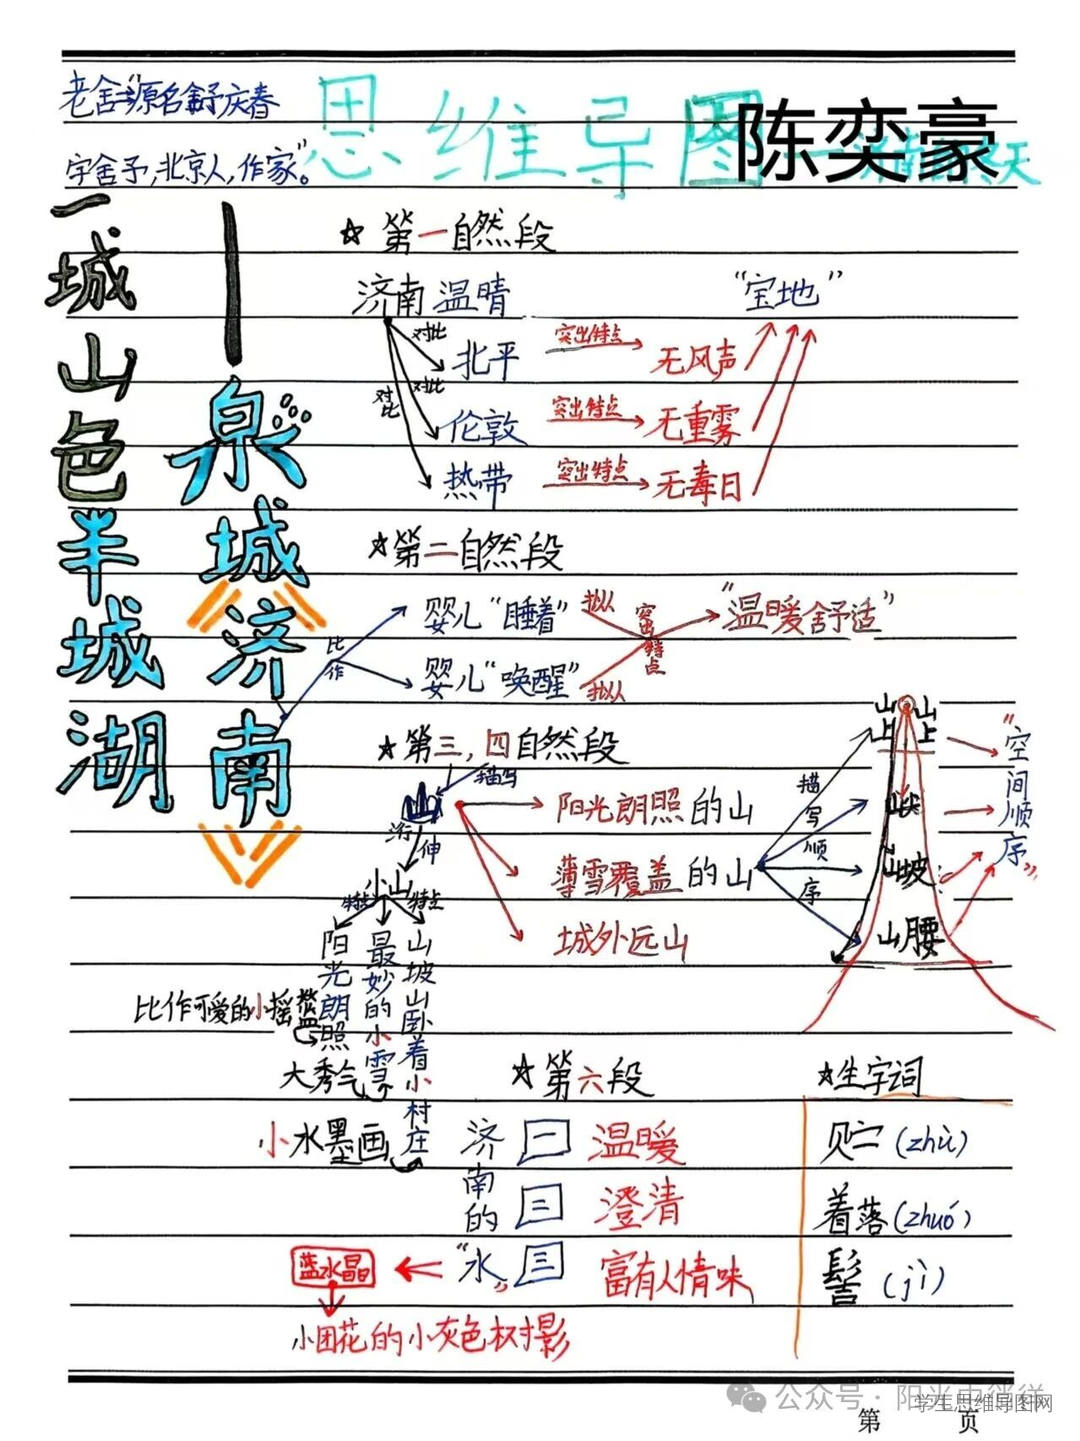 老舍"原名舒庆春
字舍予,北京人,作家。"
思维导图
陈奕豪
冬天
一城山色半城湖
一泉城济南
☆ 第一自然段
济南 温晴
"宝地"
对比
北平
突出特点
无风声
对比
对比
伦敦
突出特点
无重雾
热带
突出特点
无毒日
☆第二自然段
比作
婴儿"睡着"
拟人
婴儿"唤醒"
拟人
突出特点
"温暖舒适"
☆第三,四自然段
描写
山
阳光朗照的山
薄雪覆盖的山
城外远山
描写顺序
山上
山上
山尖
山坡
山腰
"空间顺序"
伸
小山
特点
特点
阳光朗照
最妙的小雪
山坡山卧着小村庄
比作可爱的小摇篮
大秀气
小水墨画
☆第六段
济南的"水"
一 温暖
三 澄清
三 富有人情味
蓝水晶
小团花的小灰色树影
☆生字词
贮(zhù)
着落(zhuó)
髻(jì)
公众号 · 阳光中徜徉
学生思维导图网
第 页